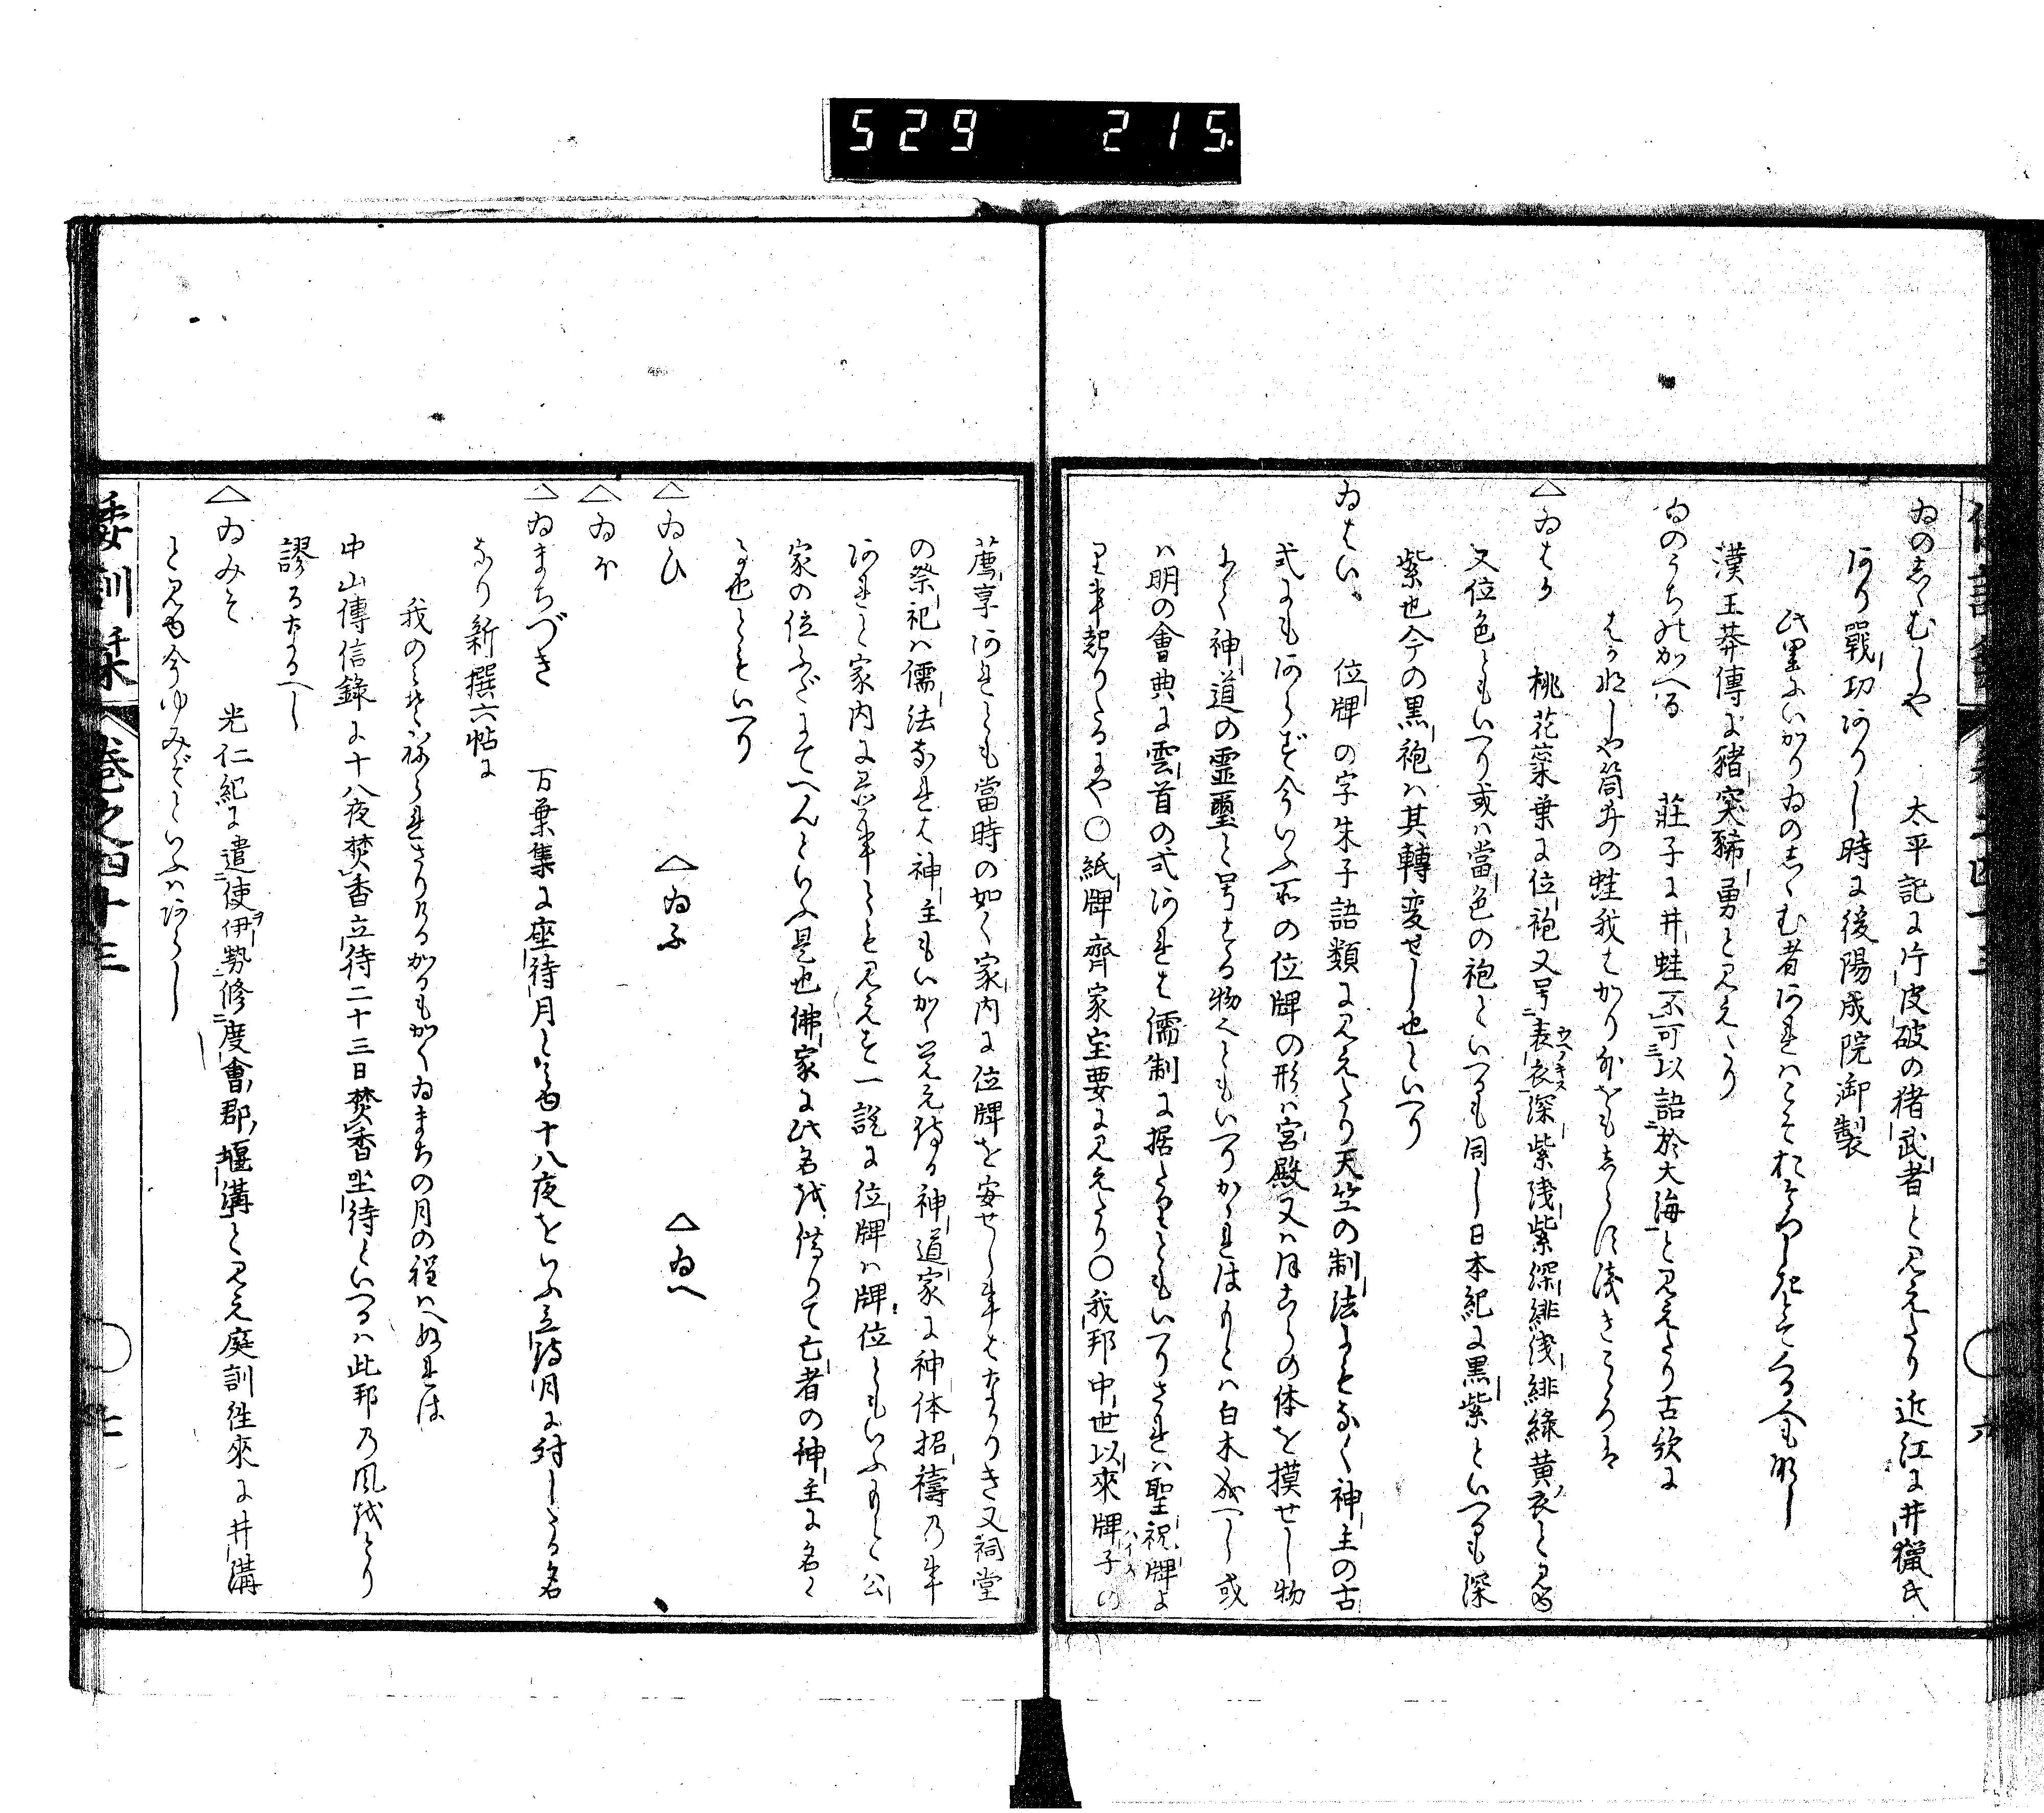 529 215
ゐのしゝむしや 太平記に片皮破の猪武者と見えたり近江に井獵氏
あり戰功ありし時に後陽成院御製
此里にいかりゐのしゝむ者あれは
漢王莽傳に猪突豨勇と見えたり
ゐのうちのかへる 莊子に井蛙不可以語於大海と見えたり古歌に
はかなしや筒井の蛙我はかり外をもしらに淺きこゝろは
△ゐはう 桃花蘂葉に位袍又号表衣深紫浅紫深緋浅緋緑黄衣と見ゆ
又位色ともいへり或ハ當色の袍といへるも同し日本紀に黒紫といへるも深
紫也今の黒袍ハ其轉変せし也といへり
ゐはい 位牌の字朱子語類に見えたり天竺の制法にもなく神主の古
式にもあらず今いふ所の位牌の形ハ宮殿又ハほこらの体を摸せし物
にて神道の靈璽と号する物くともいへりかゝれはもとハ白木成へし或
ハ明の會典に雲首の式あれは儒制に据たりともいへりされハ聖祝牌よ
り事起りたるにや〇紙牌齊家宝要に見えたり〇我邦中世以來牌子の
薦享あれとも當時の如く家内に位牌を安せし事はなかりき又祠堂
の祭祀ハ儒法なれは神主もいかゝ覚え侍る神道家に神体招禱乃事
あれと家内に忌事とも見えす一説に位牌ハ牌位ともいふもと公
家の位ふだにてへんといふ是也佛家に此名を借りて亡者の神主に名く
る也ともいへり
△ゐひ △ゐふ △ゐへ
△ゐほ
△ゐまちづき 万葉集に座待月と見ゆ十八夜をいふ立待月に対したる名
なり新撰六帖に
我のミそねられさりけるかるもかくゐまちの月の程ハへぬれは
中山傳信錄に十八夜焚香立待二十三日焚香坐待といへるハ此邦乃風をとり
謬るなるへし
△ゐみぞ 光仁紀に遣使伊勢修度會郡堰溝と見え庭訓往來に井溝
と見ゆ今ゆみぞといふハあらし
倭訓栞 巻之四十三 七